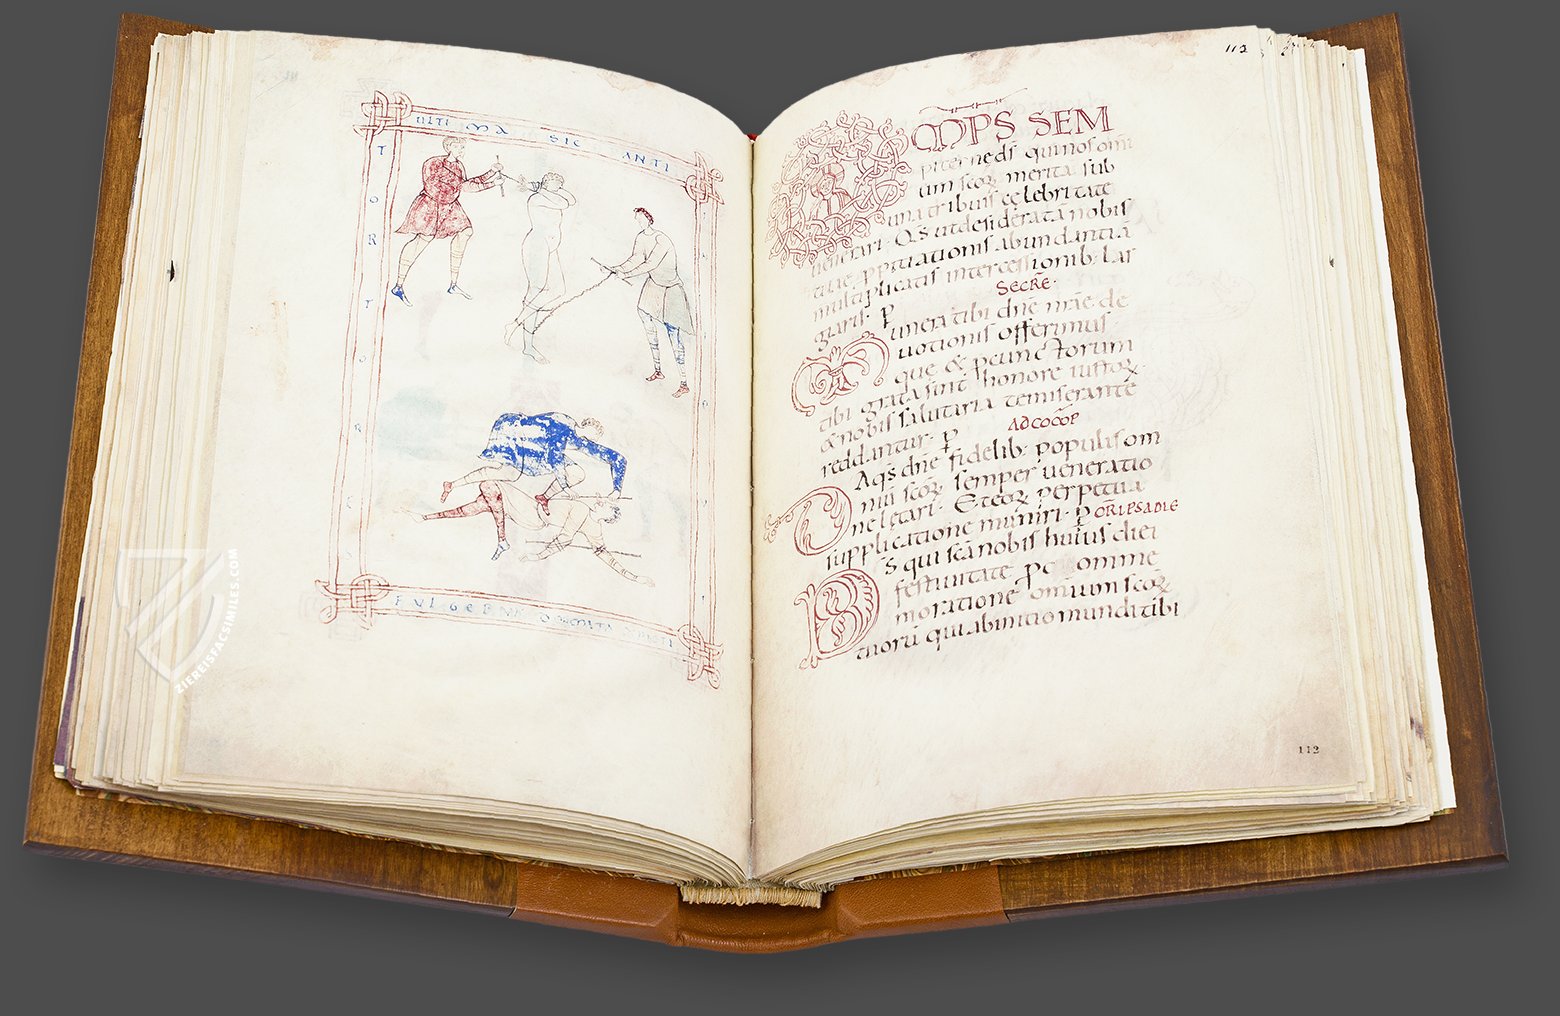 ULTI MA SIC ANTI
TORTOR
FULGRENT
112
OMPS SEM
piterne ds qui nos omi
um scoꝝ merita sub
una tribuis celebritate
uenerari · Qs ut desiderata nobis
tuae ppitiationis abundantia
multiplicatis intercessionib; lar
giaris · P
SECRE·
Munera tibi dne nrae de
uotionis offerimus
que & pcunctorum
tibi grata sint honore iustoꝝ
& nobis salutaria te miserante
reddantur · P
AD COOP
Da qs dne fidelib; populis om
niū scoꝝ semper ueneratio
ne letari · Et eoꝝ perpetua
supplicatione muniri · P
ORIPSA DIE
Ds qui scā nobis huius diei
festiuitate pc omme
moratione omium scoꝝ
tuorū qui ab initio mundi tibi
112
ZIEREISFACSIMILES.COM